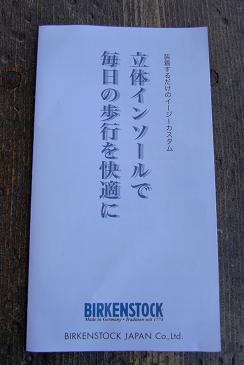 装着するだけのイージーカスタム
立体インソールで
毎日の歩行を快適に
BIRKENSTOCK
Made in Germany • Tradition seit 1774
BIRKENSTOCK JAPAN Co., Ltd.